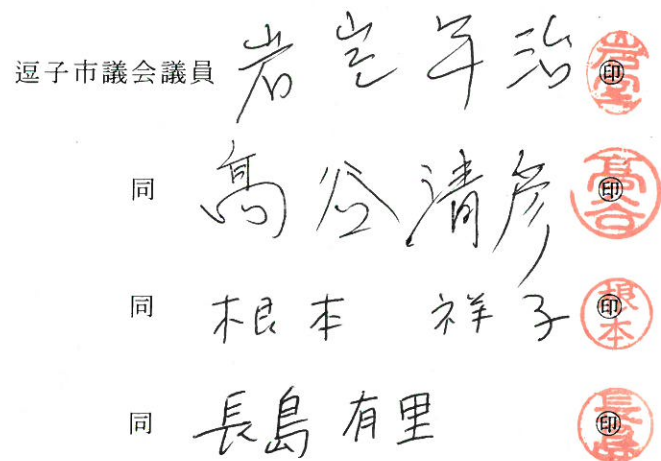 逗子市議会議員 岩室年治 ㊞
同 髙谷清彦 ㊞
同 根本 祥子 ㊞
同 長島有里 ㊞